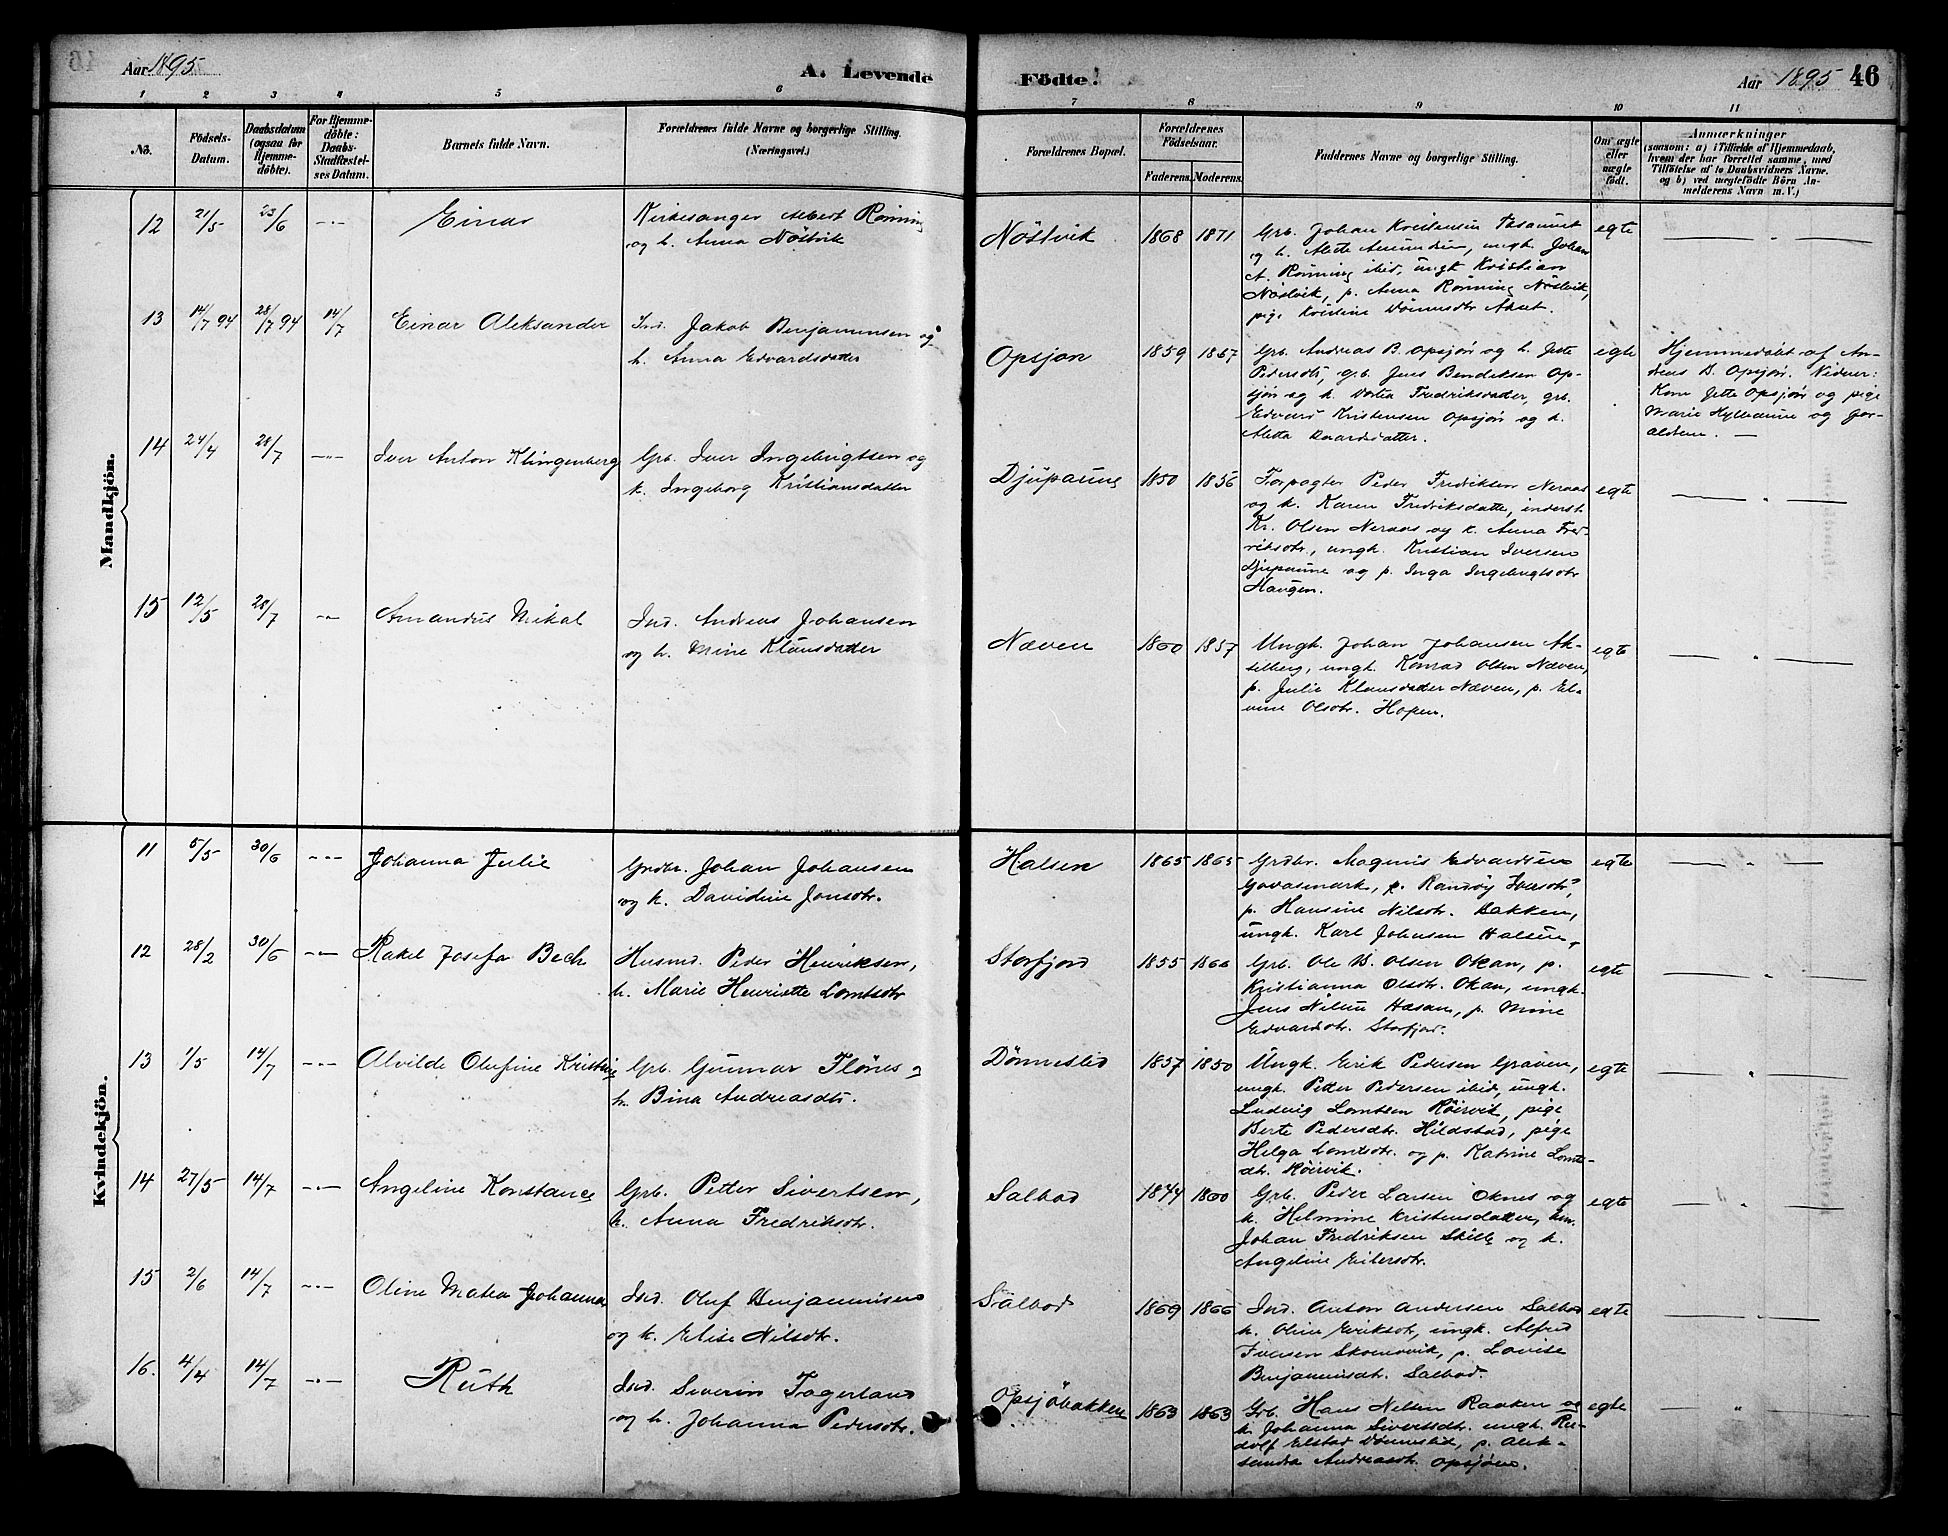 Aar 1895
A. Levende
Födte.
Aar 1895
46
1 2 3 4 5 6 7 8 9 10 11
No.
Födsels-
Datum.
Daabsdatum
(ogsaa for
Hjemme-
döbte).
For Hjemme-
döbte:
Daabs-
Stadfæstel-
ses Datum.
Barnets fulde Navn.
Forældrenes fulde Navne og borgerlige Stilling.
(Næringsvei.)
Forældrenes Bopæl.
Forældrenes
Födselsaar.
Faderens. Moderens.
Faddernes Navne og borgerlige Stilling.
Om ægte
eller
uægte
født.
Anmærkninger
(saasom: a) i Tilfælde af Hjemmedaab,
hvem der har forrettet samme, med
Tilföielse af to Daabsvidners Navne.
og b) ved uægtefödte Börn An-
melderens Navn m. V.)
Mandkjön.
12 21/5 23/6 Einar
Kirkesanger Albert Rönning
og h. Anna Nöstvik
Nöstvik 1868 1871
Grb. Johan Kristensen
og h. Alete Amundsen, ungk. Johan
A. Rönning ibid, ungk Kristian
Nöstvik, p. Anna Rönning Nöstvik,
pige Kristine
egte
13 14/7 94 28/7 94 14/7 Einar Aleksander
Ind. Jakob Benjaminsen og
h. Anna Edvardsdatter
Opsjön 1859 1867
Grb. Andreas B. Opsjön og h. Jette
Pedersdtr, grb. Jens Bendiksen Op-
sjön og h. Dortea Fredriksdatter, grb.
Edvard Kristensen Opsjön og h.
Aletta
egte
Hjemmedöbt af An-
dreas B. Opsjön. Vidner:
Kone Jette Opsjön og pige
Marie og for-
ældrene.
14 24/4 28/7 Iver Anton Klingenberg
Grb. Iver Ingebrigtsen og
h. Ingeborg Kristiansdatter
Djupaune 1850 1856
Forpagter Peder Fredriksen Neraas
og h. Karen Fredriksdatter, inderst
Kr. Olsen Neraas og h. Anna Fred-
riksdtr., ungk. Kristian Iversen
Djupaune og p. Inga Ingebrigtsdtr
Haugen.
egte
15 12/5 28/7 Amandus Mikal
Ind. Andreas Johansen
og h. Mine Klausdatter
Næven 1860 1857
Ungk. Johan Johansen Ak-
selberg, ungk. Konrad Olsen Næven,
p. Julie Klausdatter Næven, p. El-
vine Olsdtr. Hopen.
egte
Kvindekjön.
11 5/5 30/6 Johanna Julie
Grdbr. Johan Johansen
og h. Davidine Jonsdtr.
Halsen 1865 1865
Grdbr. Magnus Edvardsen
Govasmark, p. Randøy Iversdtr,
p. Hansine Nilsdtr. Bakken,
ungk. Karl Johnsen Halsen,
egte
12 28/2 30/6 Rakel Josefa Bech
Husmd. Peder Henriksen,
h. Marie Henriette Lomtsdtr
Storfjord 1855 1866
Grb. Ole B. Olsen Okan, p.
Kristianna Olsdtr. Okan, ungk.
Jens Nilsen Hasan, p. Mine
Edvardsdtr. Storfjord.
egte
13 1/5 14/7 Alvilde Olufine Kristine
Grb. Gunnar Flönes og
h. Bina Andreasdtr.
Dönnestad 1857 1850
Ungk. Erik Pedersen Graven,
ungk. Petter Pedersen ibid, ungk.
Ludvig Lomtsen Röirvik, pige
Berte Pedersdtr. Hildstad, pige
Helga Lomtsdtr. og p. Katrine Lomts-
dtr. Röirvik.
egte
14 27/5 14/7 Angeline Konstance
Grb. Petter Sivertsen,
h. Anna Fredriksdtr.
Salbod 1844 1860
Grb. Peder Larsen Oknes og
h. Helmine Kristensdatter,
Johan Fredriksen Skille og h.
Angeline Eilersdtr.
egte
15 2/6 14/7 Oline Matea Johanna
Ind. Oluf Benjaminsen
og h. Elise Nilsdtr.
Sálbod 1869 1866
Ind. Anton Andersen Salbod
h. Oline Eriksdtr, ungk. Alfred
Iversen p. Lovise
Benjaminsdtr. Salbod.
egte
16. 4/4 14/7 Ruth
Ind. Siverin Fagerland
og h. Johanna Pedersdtr.
Opsjöbakken 1863 1863
Grb. Hans Nilsen Raaken og
h. Johanna Sivertsdtr. ungk. Ru-
dolf Elstad Dönnestad, p. Alek-
sandra Andreasdtr. Opsjöen.
egte